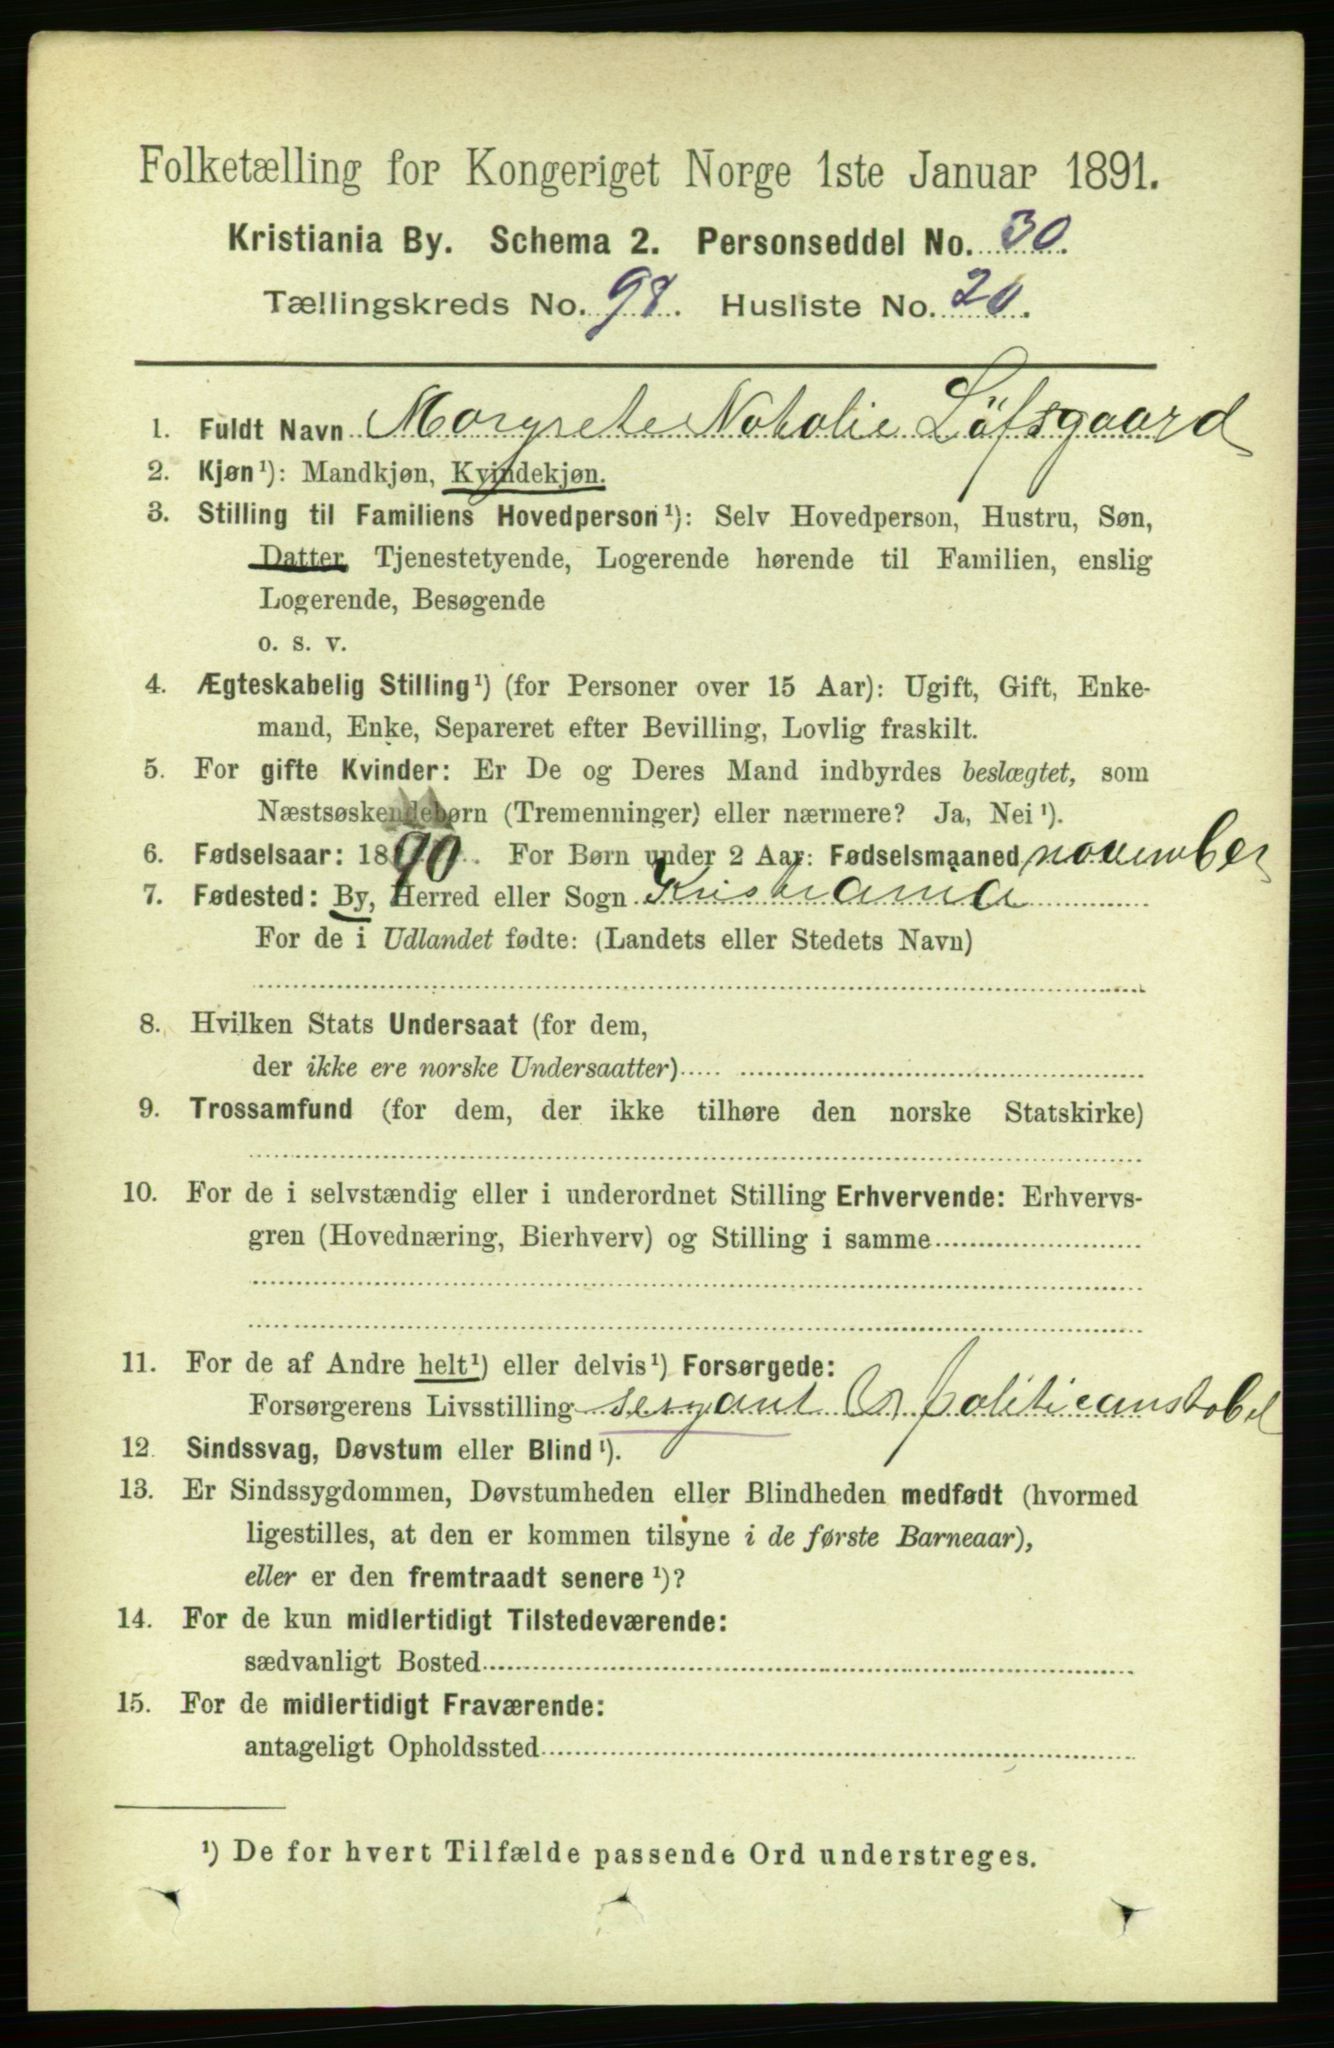 Folketælling for Kongeriget Norge 1ste Januar 1891.
Kristiania By. Schema 2. Personseddel No. 30.
Tællingskreds No. 98. Husliste No. 20.
1. Fuldt Navn Margrete Natalie Löfsgaard
2. Kjøn¹): Mandkjøn, Kvindekjøn.
3. Stilling til Familiens Hovedperson¹): Selv Hovedperson, Hustru, Søn,
Datter, Tjenestetyende, Logerende hørende til Familien, enslig
Logerende, Besøgende
o. s. v.
4. Ægteskabelig Stilling¹) (for Personer over 15 Aar): Ugift, Gift, Enke-
mand, Enke, Separeret efter Bevilling, Lovlig fraskilt.
5. For gifte Kvinder: Er De og Deres Mand indbyrdes beslægtet, som
Næstsøskendebørn (Tremenninger) eller nærmere? Ja, Nei¹).
6. Fødselsaar: 1890. For Børn under 2 Aar: Fødselsmaaned november
7. Fødested: By, Herred eller Sogn Kristiania
For de i Udlandet fødte: (Landets eller Stedets Navn)
8. Hvilken Stats Undersaat (for dem,
der ikke ere norske Undersaatter)
9. Trossamfund (for dem, der ikke tilhøre den norske Statskirke)
10. For de i selvstændig eller i underordnet Stilling Erhvervende: Erhvervs-
gren (Hovednæring, Bierhverv) og Stilling i samme
11. For de af Andre helt¹) eller delvis¹) Forsørgede:
Forsørgerens Livsstilling sergant politicanstabel
12. Sindssvag, Døvstum eller Blind¹).
13. Er Sindssygdommen, Døvstumheden eller Blindheden medfødt (hvormed
ligestilles, at den er kommen tilsyne i de første Barneaar),
eller er den fremtraadt senere¹)?
14. For de kun midlertidigt Tilstedeværende:
sædvanligt Bosted
15. For de midlertidigt Fraværende:
antageligt Opholdssted
¹) De for hvert Tilfælde passende Ord understreges.